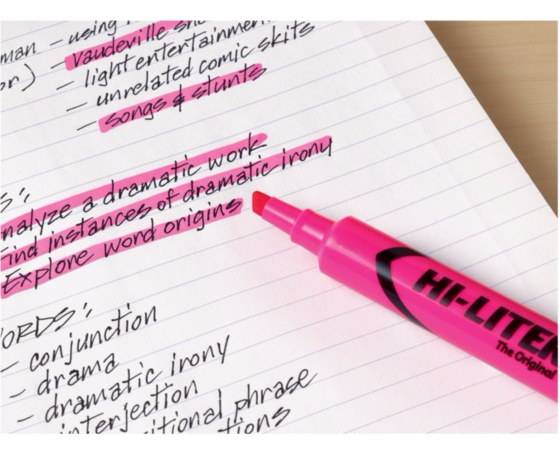 - using
man - vaudeville
or) - light entertainment
- unrelated comic skits
- songs & stunts
s:
nalyze a dramatic work
ind instances of dramatic irony
Explore word origins
ORDS:
- conjunction
- drama
- dramatic irony
- interjection
itional phrase
tions
HI-LITE
The Original